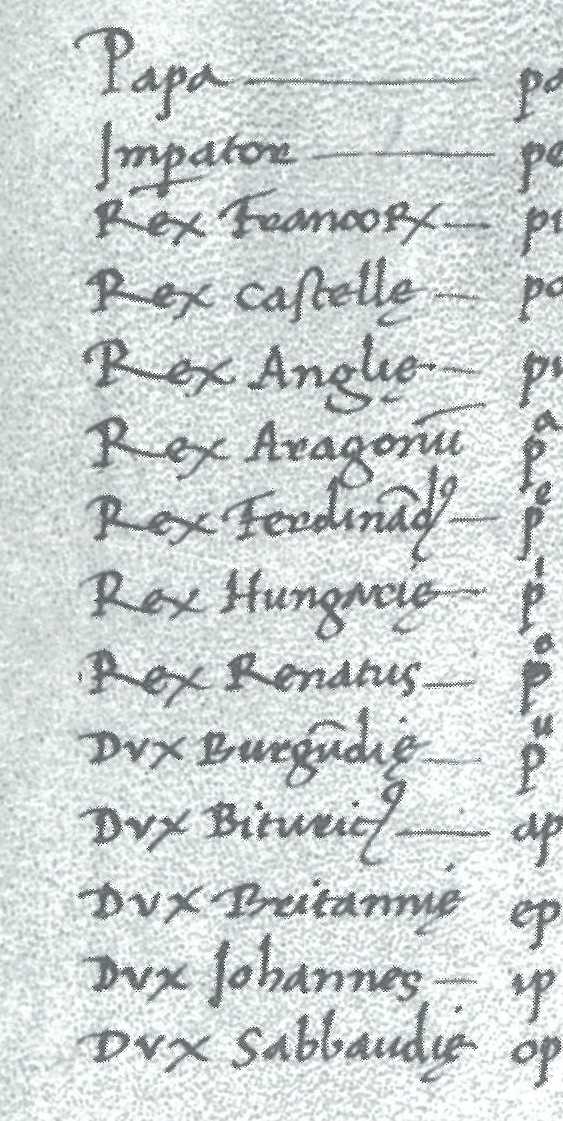 Papa — pa
Impator — pe
Rex FrancoRx — pi
Rex Castellę — po
Rex Anglię — pu
Rex Aragonū pᵃ
Rex Ferdinādꝰ — pᵉ
Rex Hungarię — pⁱ
Rex Renatus — pᵒ
Dvx Burgūdię — pᵘ
Dvx Bituricꝰ — ap
Dvx Britannię ep
Dvx Johannes — ip
Dvx Sabbaudię op